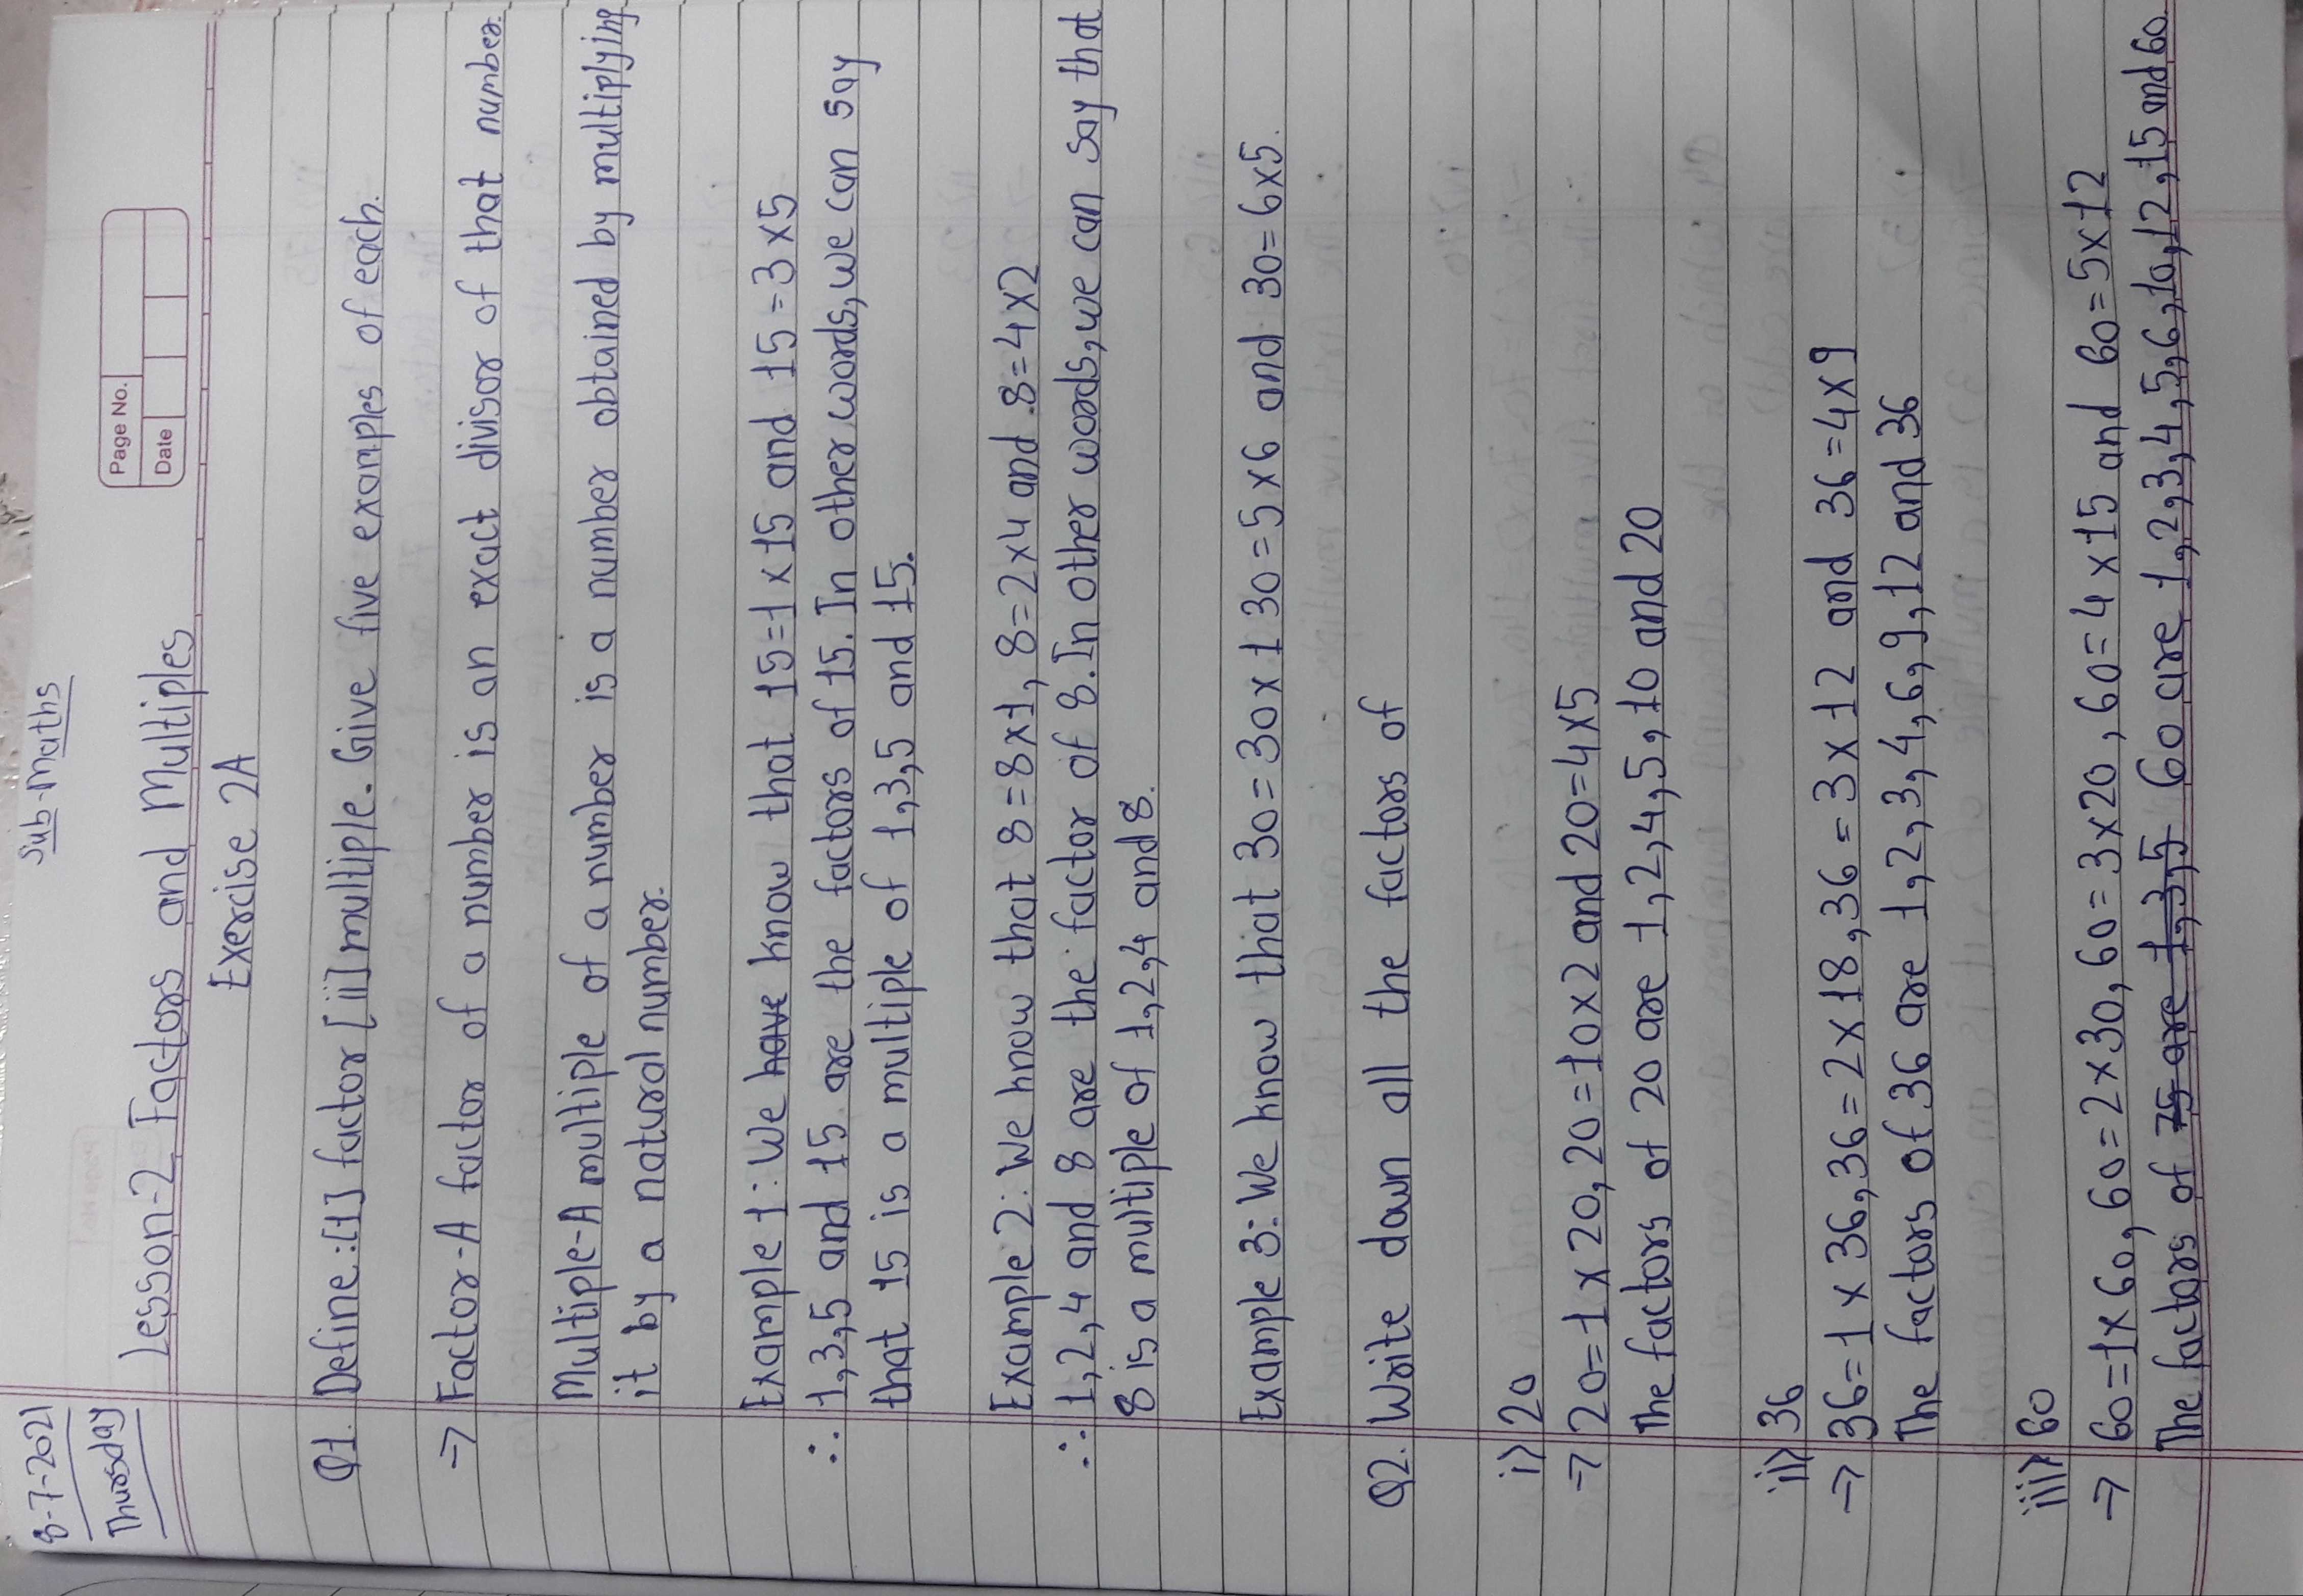 8-7-2021
Thursday
Sub-Maths
Page No.
Date
Lesson-2 Factors and Multiples
Exercise 2A
Q1. Define:[i] factor [ii] multiple. Give five examples of each.
→ Factor-A factor of a number is an exact divisor of that number.
Multiple-A multiple of a number is a number obtained by multiplying
it by a natural number.
Example 1: We have know that 15=1×15 and 15=3×5
∴ 1,3,5 and 15 are the factors of 15. In other words, we can say
that 15 is a multiple of 1,3,5 and 15.
Example 2: We know that 8=8×1, 8=2×4 and 8=4×2
∴ 1,2,4 and 8 are the factor of 8. In other words, we can say that
8 is a multiple of 1,2,4 and 8.
Example 3: We know that 30=30×1 30=5×6 and 30=6×5.
Q2. Write down all the factors of
i> 20
→ 20=1×20, 20=10×2 and 20=4×5
The factors of 20 are 1,2,4,5,10 and 20
ii> 36
→ 36=1×36, 36=2×18, 36=3×12 and 36=4×9
The factors of 36 are 1,2,3,4,6,9,12 and 36
iii> 60
→ 60=1×60, 60=2×30, 60=3×20, 60=4×15 and 60=5×12
The factors of 75 are 1,3,5 60 are 1,2,3,4,5,6,10,12,15 and 60.